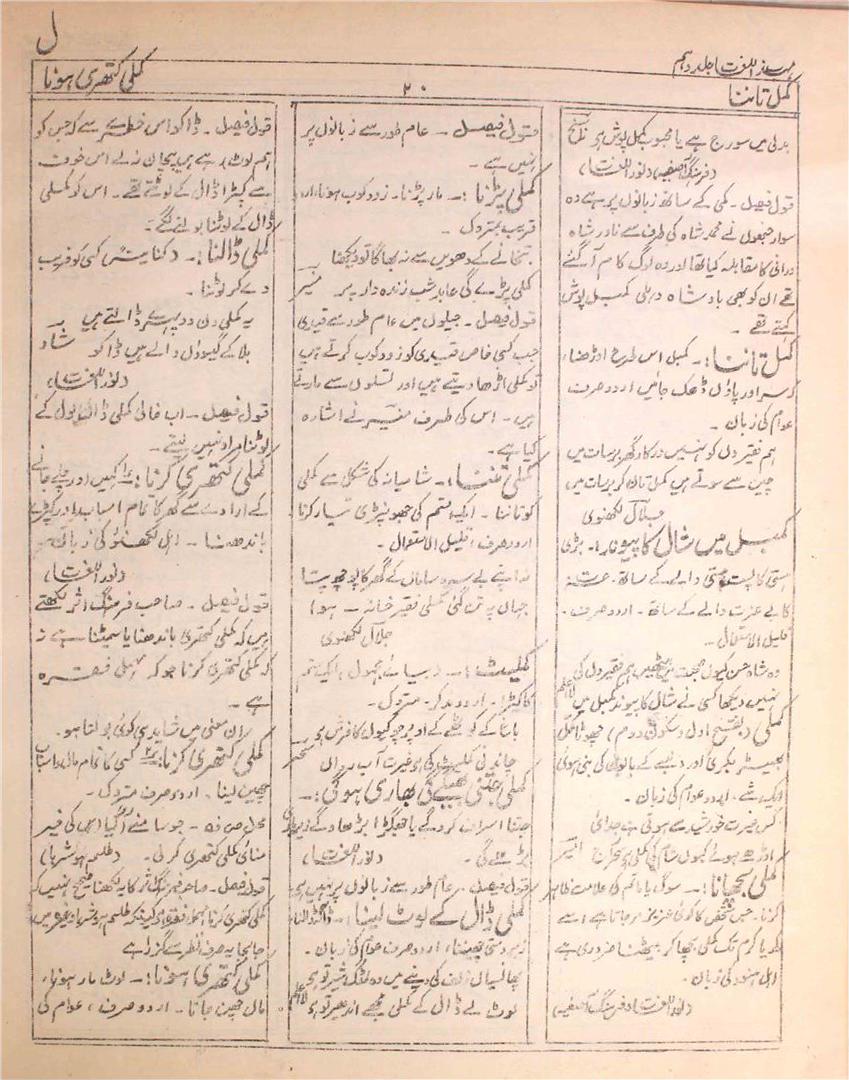 ل
مہذب اللغت جلد دہم
کمل تاننا
۲۰
کملی گٹھری ہونا
بدلی میں سورج ہے یا محبوب کمل پوش ہے ناسخ
(فرہنگ آصفیہ) (نور اللغت)
قول فیصل۔ کمی کے ساتھ زبانوں پر ہے وہ
سوار جنھوں نے محمد شاہ کی طرف سے نادر شاہ
درانی کا مقابلہ کیا تھا اور وہ لوگ کام آگئے
تھے ان کو بھی بادشاہ دہلی کمبل پوش
کہتے تھے۔
کمل تاننا:۔ کمبل اس طرح اوڑھنا،
کہ سر اور پاؤں ڈھک جائیں اردو صرف
عوام کی زبان۔
ہم فقیر دل کو نہیں درکار گھر برسات میں
چین سے سوتے ہیں کمل تان کر برسات میں
جلال لکھنوی
کمبل میں شال کا پیوند:۔ بڑی
ہستی کا پست ہستی والے کے ساتھ۔ عزت
کا بے عزت والے کے ساتھ۔ اردو صرف۔
قلیل الاستعمال۔
وہ شاہ حسن کیوں صحبت میں بیٹھیں ہم فقیروں کی
نہیں دیکھا کسی نے شال کا پیوند کمبل میں لااعلم
کملی (بفتح اول و سکون دوم) چھوٹا کمل
بھیڑ بکری اور دنبے کے بالوں کی بنی ہوئی
ایک شے۔ اردو عوام کی زبان۔
کس غیرت خورشید سے ہوتی ہے جدائی
اوڑھے ہوئے کیوں شام کی کملی ہے سحر آج
کملی بچھانا:۔ سوگ یا ماتم کی علامت ظاہر
کرنا۔ جس شخص کا کوئی عزیز مر جاتا ہے اسے
کریا کرم تک کملی بچھا کر بیٹھنا ضروری ہے
اہل ہنود کی زبان۔
(نور اللغت و فرہنگ آصفیہ)
قول فیصل۔ عام طور سے زبانوں پر
نہیں ہے۔
کملی پڑنا:۔ مار پڑنا۔ زد و کوب ہونا، اردو
قریب بمتروک۔
بتخانے کے دھویں سے نہ بھاگا تو دیکھنا
کملی پڑے گی عابد شب زندہ دار پر منیر
قول فیصل۔ جیلوں میں عام طور سے قیدی
جب کسی خاص قیدی کو زد و کوب کرتے ہیں
تو کملی اڑھا دیتے ہیں اور تسلوں سے مارتے
ہیں۔ اس کی طرف منیر نے اشارہ
کیا ہے۔
کملی تننا:۔ شامیانہ کی شکل سے کملی
کو تاننا۔ ایک قسم کی جھونپڑی تیار کرنا
اردو صرف، قلیل الاستعمال۔
نہ اپنے بے سر و سامان کے گھر کا پوچھو پتا
جہاں پر تن گئی کملی فقیر خانہ ہوا
جلال لکھنوی
کملیٹ:۔ (بیائے مجہول) ایک قسم
کا کپڑا۔ اردو مذکر۔ متروک۔
باغ کے کوٹھے کے اوپر جو گیوں کا فرش ہے
چاندنی کملیٹ کی ہے غیرت آب رواں سحر
کملی جتنی بھیگے گی بھاری ہوگی:۔
جتنا اسراف کرو گے یا جھگڑا بڑھاؤ گے زیر باری
بڑھے گی۔ (نور اللغت)
قول فیصل۔ عام طور سے زبانوں پر نہیں ہے
کملی ڈال کے لوٹ لینا۔ ڈاکہ ڈالنا،
زبردستی چھیننا، اردو صرف عوام کی زبان۔
پچالیاں زلف کی دینے میں وہ لنگ شیر توبہ
لوٹ لے ڈال کے کملی مجھے اندھیر تو ہے لااعلم
قول فیصل۔ ڈاکو اس خطرے سے کہ جس کو
ہم لوٹ رہے ہیں پہچان نہ لے اس خوف
سے کپڑا ڈال کے لوٹتے تھے۔ اس کو کملی
ڈال کے لوٹنا بولنے لگے۔
کملی ڈالنا:۔ (کنایتہً) کسی کو فریب
دے کر لوٹنا۔
یہ کملی دن دوپہرے ڈالتے ہیں
بلا کے گیسوؤں والے ہیں ڈاکو شاد
(نور اللغت)
قول فیصل۔ اب خالی کملی ڈالنا بول کے
لوٹنا مراد نہیں لیتے۔
کملی گٹھری کرنا:۔ (۱) کہیں اور چلے جانے
کے ارادے سے گھر کا تمام اسباب اور کپڑے
باندھنا۔ اہل لکھنؤ کی زبان ہے
(نور اللغت)
قول فیصل۔ صاحب فرہنگ اثر لکھتے
ہیں کہ کملی گٹھری باندھنا یا سمیٹنا ہے نہ
کہ کملی گٹھری کرنا جو کہ مہمل فقرہ
ہے۔
ان معنی میں شاید ہی کوئی بولتا ہو۔
کملی گٹھری کرنا:۔ (۲) کسی کا تمام مال و اسباب
چھین لینا۔ اردو صرف متروک۔
محل صرف۔ جو سامنے آ گیا اس کی خیر
منائی کملی گٹھری کر لی۔ (طلسم ہوشربا)
قول فیصل۔ صاحب فرہنگ اثر کا یہ لکھنا صحیح نہیں کہ
کملی گٹھری کرنا مہمل فقرہ ہے کیونکہ طلسم ہوشربا وغیرہ میں
جا بجا یہ صرف نظر سے گزرا ہے
کملی گٹھری ہونا:۔ لوٹ مار ہونا،
مال چھن جانا۔ اردو صرف، عوام کی